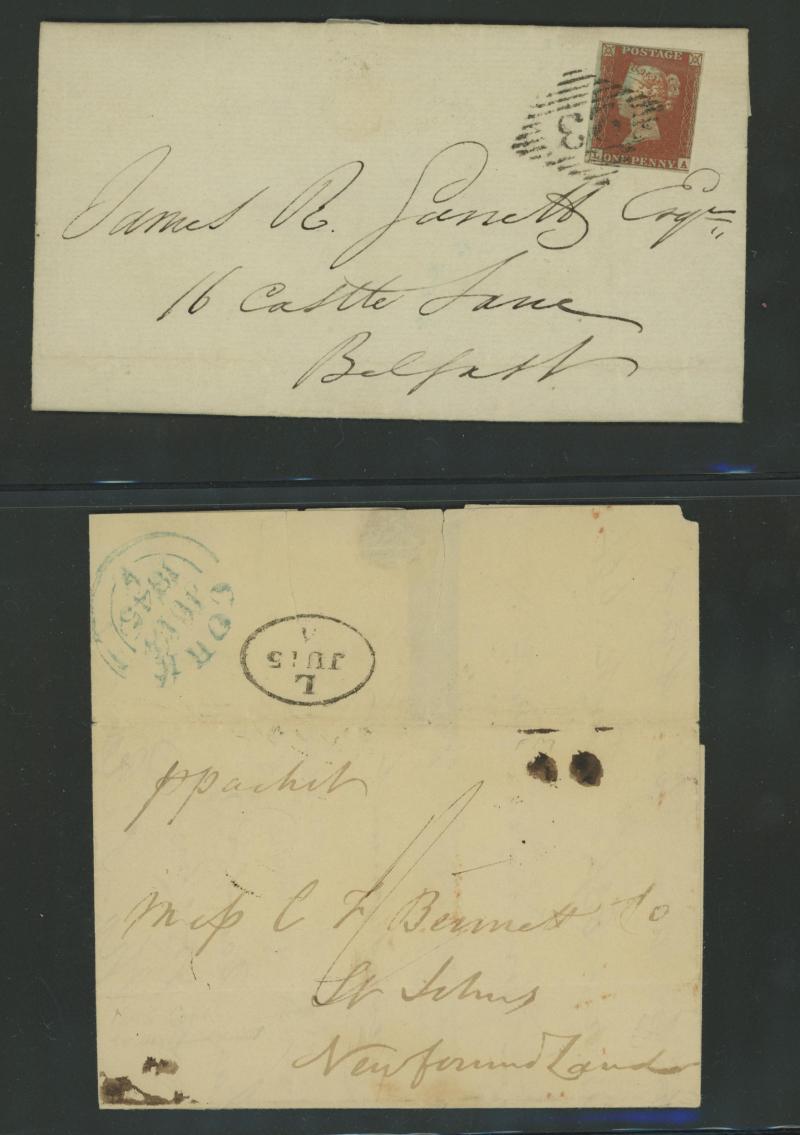 POSTAGE
L ONE PENNY A
James R. Garrett Esqr
16 Castle Lane
Belfast
CORK
JU
1845
L
JU 5
A
p packet
Mess C F Bennett Co
St Johns
Newfoundland